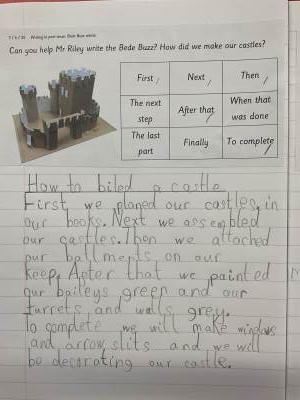 Can you help Mr Riley write the Bede Buzz? How did we make our castles?
First Next Then
The next step After that When that was done
The last part Finally To complete
How to biled a castle
First we planed our castles in
our books. Next we assembled
our castles. Then we attached
our ballments on our
keep. After that we painted
our baileys green and our
turrets and walls grey.
To complete we will make windows
and arrow slits and we will
be decorating our castle.